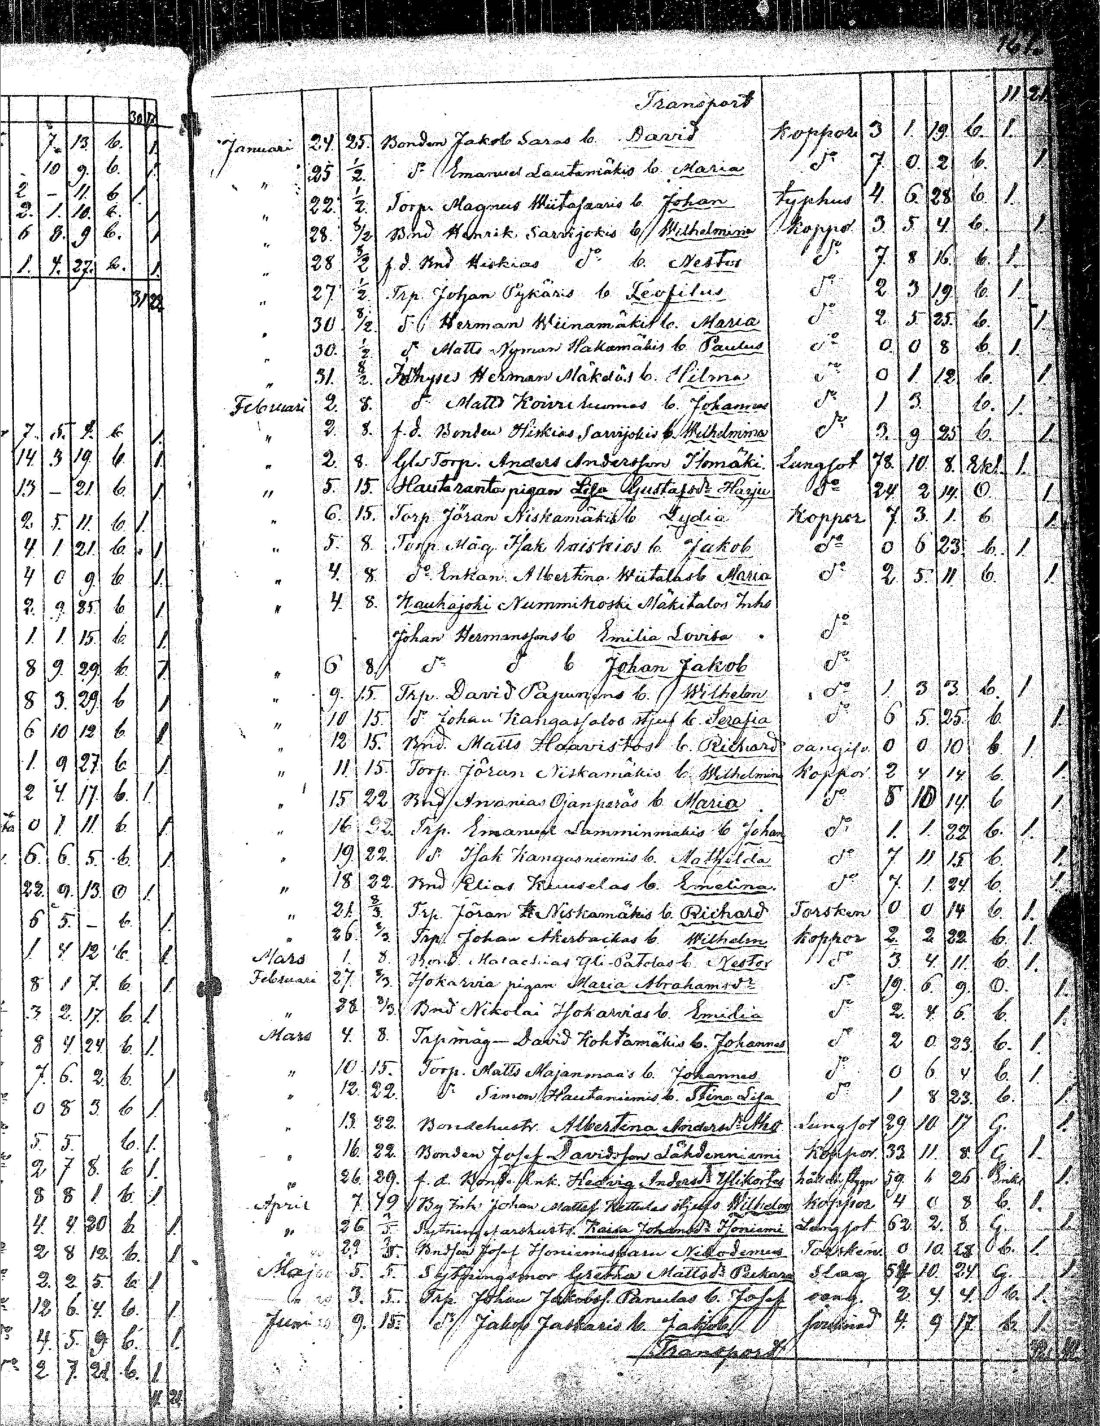 30 12
7. 13 b. 1.
10 9. b. 1.
2 - 11 b 1.
2. 1. 10. b. 1.
6 8. 9 b. 1.
1. 4. 27. b. 1.
31 22
7. 5. b 1.
14 3 19. b. 1.
13 - 21. b. 1.
2 5. 11. b 1.
4. 1 21. b. 1.
4 0 9. b 1.
2. 9. 25. b 1.
1 1. 15. b. 1.
8 9. 29. b. 1.
8 3. 29. b 1.
6 10 12 b 1.
1. 9 27. b 1.
2 4. 17. b. 1.
0 1. 11. b. 1.
6. 6. 5. b. 1.
22. 9. 13. 0 1.
6 5. - b. 1.
1. 4 12 b. 1.
8 1 7. b. 1.
3 2. 17. b. 1.
8 4. 24 b. 1.
7. 6. 2. b. 1.
0 8 3. b 1.
5 5. b. 1.
2 7 8. b 1.
8 8 1. b 1.
4 4 20 b 1.
2 8 12. b. 1.
2. 2 5 b 1.
12 6. 4. b. 1.
4. 5. 9. b. 1.
2 7. 21. b. 1.
11. 21.
161.
Transport 11 21.
Januari 24. 25. Bonden Jakob Saras b. David Koppor 3 1. 19. b. 1.
" 25 1/2. do Emanuel Lautamäkis b. Maria do 7. 0. 2 b. 1.
" 22. 1/2. Torp. Magnus Wiitasaaris b. Johan typhus 4. 6. 28 b 1.
" 28. 8/2 Bnd Henrik Sarvijokis b. Wilhelmina Koppor 3. 5 4 b. 1.
" 28 8/2 f.d. Bnd Hiskias do b. Nestor do 7. 8 16. b. 1.
" 27. 1/2. Trp. Johan Pykäris b. Teofilus do 2 3 19 b. 1.
" 30. 8/2. do Herman Wiinamäkis b. Maria do 2 5 25. b. 1.
" 30. 1/2 do Matts Nyman Hakamäkis b. Paulus do 0. 0 8 b. 1
" 31. 8/2. Inhyses Herman Mäkeläs b. Hilma do 0 1 12 b. 1.
Februari 2. 8. do Matts Koivuluomas b. Johannes do 1 3. b. 1.
" 2. 8. f.d. Bonden Hiskias Sarvijokis b. Wilhelmina do 3. 9 25 b. 1.
" 2. 8. Gle Torp. Anders Andersson Ilomäki Lungsot 78. 10 8. Ekl. 1.
" 5. 15. Hautaranta pigan Lisa Gustafsdr Harju do 24. 2 14. O. 1.
" 6. 15. Torp Jöran Niskamäkis b Lydia Koppor 7 3. 1. b. 1.
" 5. 8. Torp. Måg Isak b. Jakob do 0 6 23. b. 1.
" 4. 8. do Enkan Albertina Wiitalas b Maria do 2. 5 11 b. 1.
" 4. 8. Kauhajoki Nummikoski Mäkitalos Inhs
Johan Hermanssons b Emilia Lovisa do
" 6 8. do do b Johan Jakob do
" 9. 15. Trp. David Papunens b. Wilhelm do 1. 3 3. b. 1
" 10 15. do Johan Kangassalos styfs b. Serafia do 6 5. 25. b. 1.
" 12 15. Bnd. Matts Haavistos b. Richard oangifv. 0 0 10. b 1.
" 11. 15. Torp. Jöran Niskamäkis b. Wilhelmina Koppor. 2 4 14. b. 1.
" 15 22 Bnd Ananias Ojanperäs b. Maria do 5 10 14. b 1.
" 16 22. Trp. Emanuel Lamminmäkis b Johan do 1. 1. 22 b. 1.
" 19. 22. do Isak Kangasniemis b. Mathilda do 7 11 15 b. 1.
" 18 22. Bnd Elias Kuuselas b. Emelina. do 7. 1. 24 b. 1.
" 21. 8/3. Trp. Jöran Niskamäkis b. Richard Torsken 0 0 14 b. 1.
" 26. 8/3. Trp. Johan Åkerbackas b. Wilhelm Koppor 2. 2 22. b. 1.
Mars 1. 8. Bond. Malachias Yli-Patolas b. Nestor do 3 4 11. b. 1.
Februari 27. 8/3. Isokarvia pigan Maria Abrahamsdr do 19. 6. 9. O. 1.
" 28. 8/3. Bnd Nikolai Isokarvias b. Emilia do 2. 4 6 b. 1.
Mars 4. 8. Trp måg David Kohtamäkis b. Johannes do 2 0 23. b. 1.
" 10. 15. Torp. Matts Majanmaas b. Johannes do 0 6 4 b. 1.
" 12. 22. do Simon Hautaniemis b. Stina Lisa do 1 8 23. b. 1.
" 13. 22. Bondehustr. Albertina Andersdr Aho Lungsot 29. 10 17 G. 1.
" 16. 22. Bonden Josef Davidsson Lähdenniemi Koppor. 33 11. 8. G 1.
" 26. 29. f.d. Bonde Enk. Hedvig Andersdr 59. 6 26 Enkl 1.
April 7. 19 By Inh Johan Mattss. Kettulas styfs Wilhelm Koppor 4 0 8 b. 1.
" 26 Sytningmarshustr. Kaisa Johansdr Isoniemi Lungsot 62. 2. 8 G. 1.
" 29. Bndson Josef Isoniemis barn Nikodemus Torsken. 0 10. 28. b. 1.
Maj 5. 5. Sytningsmor Gretha Mattsdr Slag 54 10. 24 G. 1.
" 3. 5. Trp. Johan Jakobss. Panulas b. Josef oang. 2 4 4 b. 1.
Juni 9. 15. do Jakob Jaskaris b. Jakob 4. 9 17. b. 1.
Transport